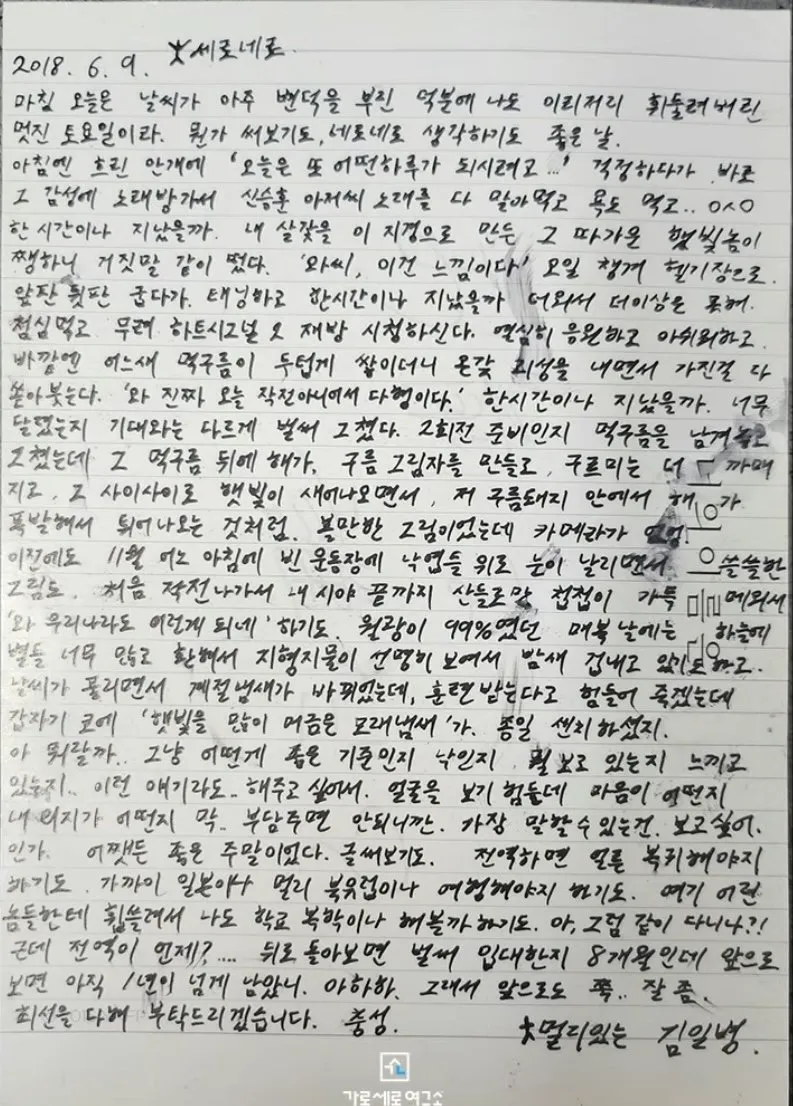 2018. 6. 9. 세로네로.
마침 오늘은 날씨가 아주 변덕을 부린 덕분에 나도 이리저리 휘둘려버린
멋진 토요일이라. 뭔가 써보기도, 네로네로 생각하기도 좋은 날.
아침엔 흐린 안개에 '오늘은 또 어떤하루가 되시려고...' 걱정하다가 바로
그 감성에 노래방가서 신승훈 아저씨 노래를 다 말아먹고 욕도 먹고.. ㅇㅅㅇ
한시간이나 지났을까. 내 살갗을 이 지경으로 만든 그 따가운 햇빛놈이
쨍하니 거짓말 같이 떴다. '와씨, 이건 느낌이다' 오일 챙겨 헬기장으로.
앞판 뒷판 굽다가. 태닝하고 한시간이나 지났을까 더워서 더이상은 못해.
점심먹고 무려 하트시그널2 재방 시청하신다. 열심히 응원하고 아쉬워하고.
바깥엔 어느새 먹구름이 두텁게 쌓이더니 온갖 괴성을 내면서 가진걸 다
쏟아붓는다. '와 진짜 오늘 작전아니어서 다행이다.' 한시간이나 지났을까. 너무
달렸는지 기대와는 다르게 벌써 그쳤다. 2회전 준비인지 먹구름을 남겨놓고
그쳤는데 그 먹구름 뒤에 해가, 구름 그림자를 만들고, 구르미는 더 까매
지고, 그 사이사이로 햇빛이 새어나오면서, 저 구름돼지 안에서 해가
폭발해서 튀어나오는 것처럼. 볼만한 그림이었는데 카메라가 없엉
이전에도 11월 어느 아침에 빈 운동장에 낙엽들 위로 눈이 날리면서 쓸쓸한
그림도. 처음 작전나가서 내 시야 끝까지 산들로만 첩첩이 가득 메워서
'와 우리나라도 이런게 되네' 하기도. 월광이 99%였던 매복날에는 하늘에
별들 너무 많고 환해서 지형지물이 선명히 보여서 밤새 겁내고 있기도 하고.
날씨가 풀리면서 계절냄새가 바뀌었는데, 훈련받는다고 힘들어 죽겠는데
갑자기 코에 '햇빛을 많이 머금은 모래냄새'가. 종일 센치하셨지.
아 뭐랄까.. 그냥 어떤게 좋은 기준인지 낙인지 뭘 보고 있는지 느끼고
있는지.. 이런 얘기라도.. 해주고 싶어서. 얼굴을 보기 힘든데 마음이 어떤지
내 의지가 어떤지 막.. 부담주면 안되니깐. 가장 말할수있는건. 보고싶어.
인가. 어쨋든 좋은 주말이었다. 글써보기도. 전역하면 얼른 복귀해야지
하기도. 가까이 일본이나 멀리 북유럽이나 여행해야지 하기도. 여기 어린
놈들한테 휩쓸려서 나도 학교 복학이나 해볼까 하기도. 아, 그럼 같이 다니나?!
근데 전역이 언제?.... 뒤로 돌아보면 벌써 입대한지 8개월인데 앞으로
보면 아직 1년이 넘게 남았니. 아하하. 그래서 앞으로도 쭉.. 잘 좀.
최선을 다해 부탁드리겠습니다. 충성.
멀리있는 김일병.
가로세로연구소